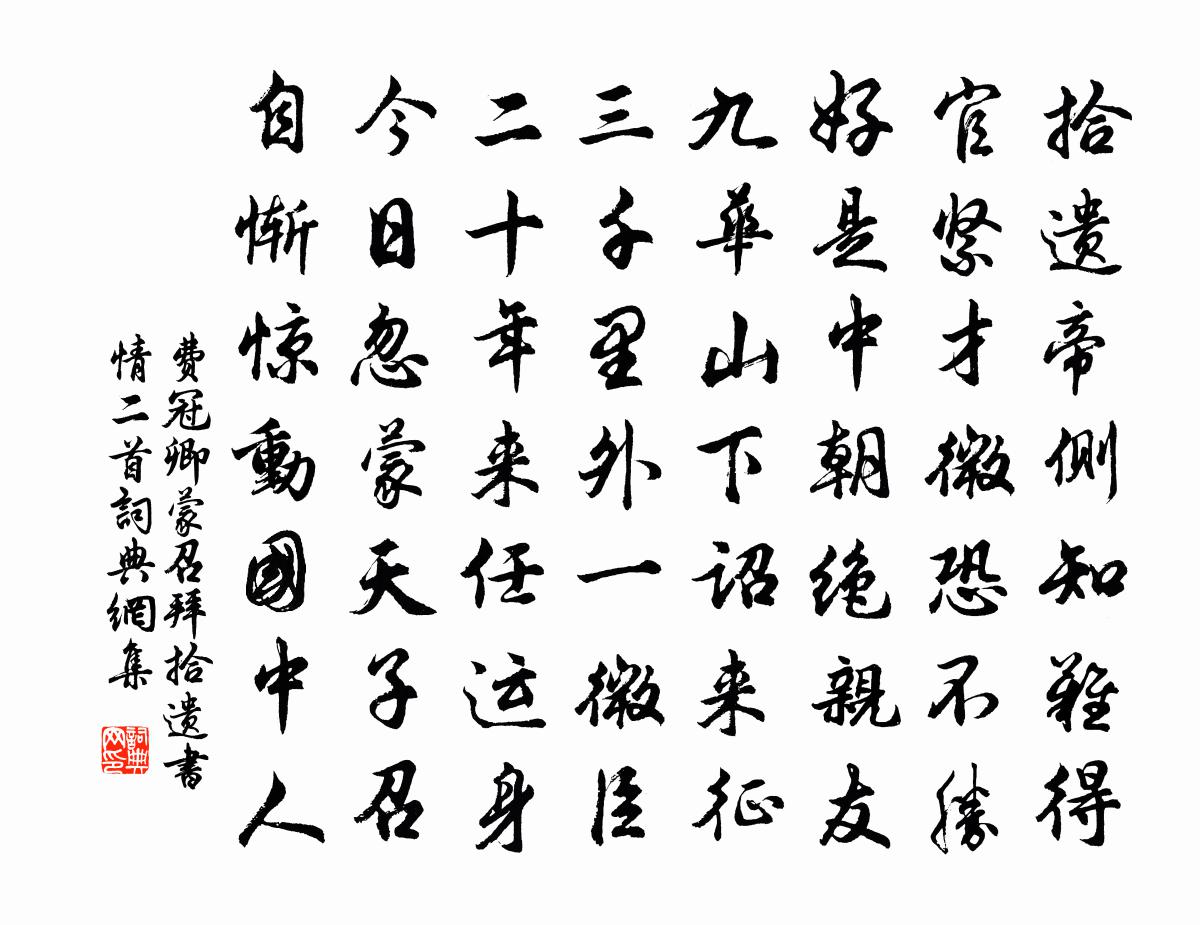 拾遗帝侧知難得
官紧才微恐不勝
好是中朝绝親友
九華山下诏来征
三千里外一微臣
二十年来任运身
今日忽蒙天子召
自惭惊動國中人
費冠卿蒙召拜拾遗書
情二首詞典網集
詞典网印